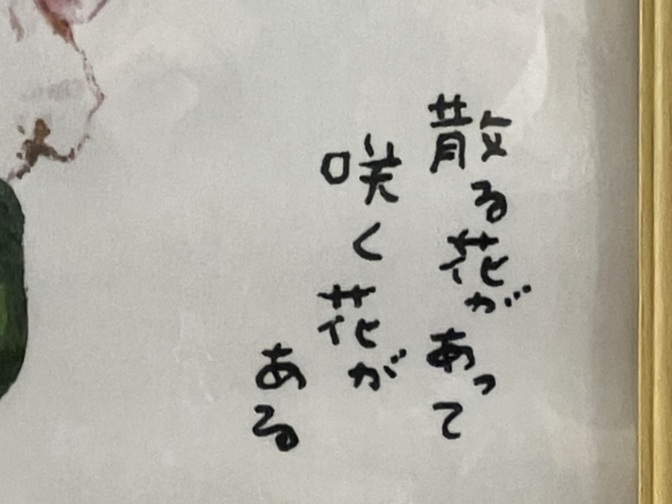 散る花があって
咲く花が
ある